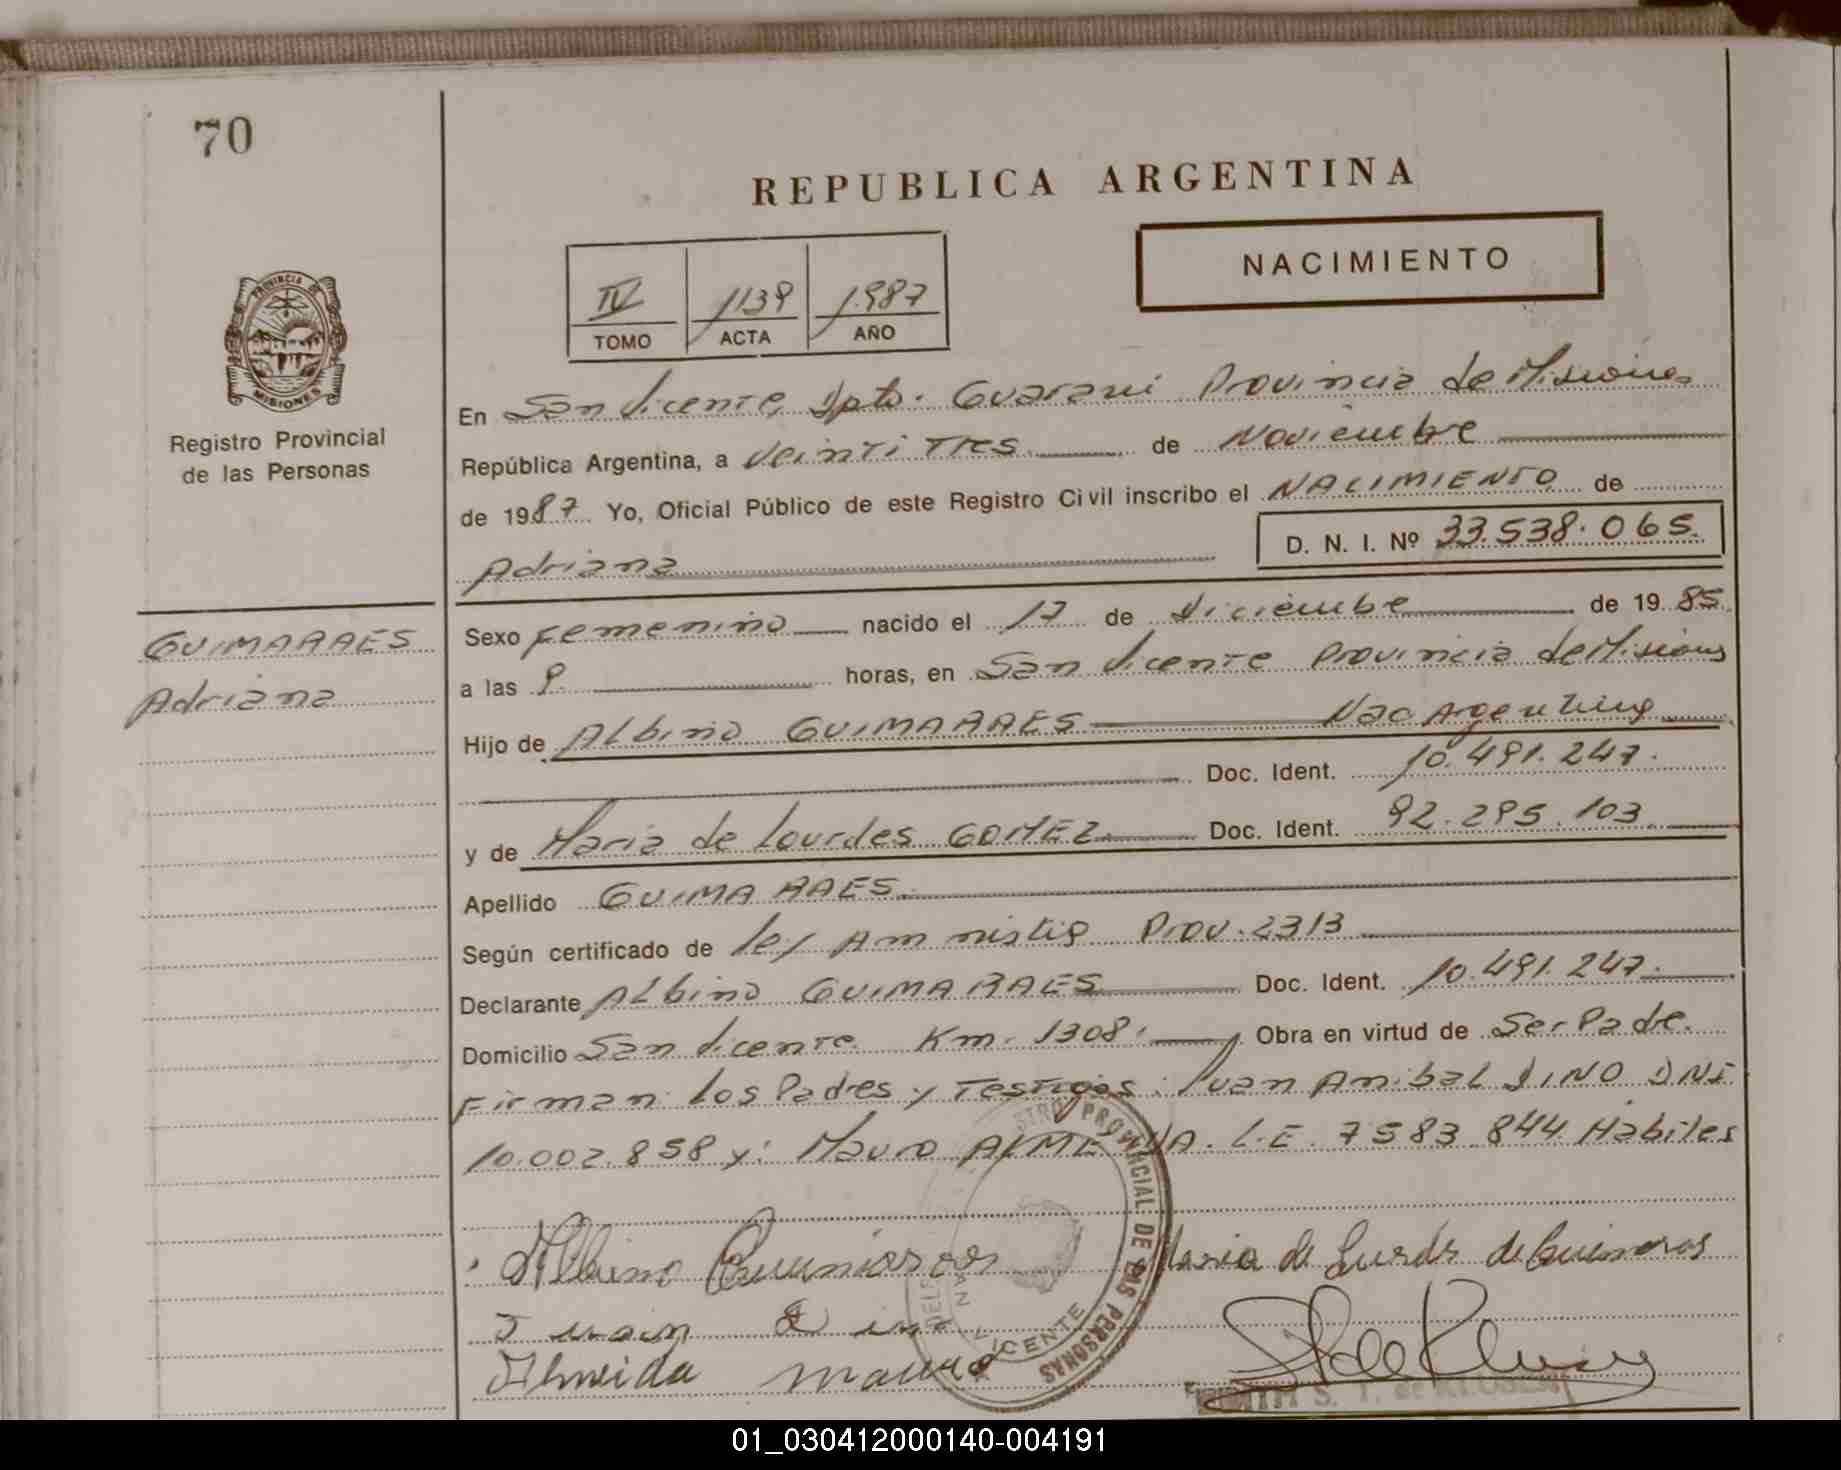 70
REPUBLICA ARGENTINA
NACIMIENTO
IV 1139 1987
TOMO ACTA AÑO
PROVINCIA DE
MISIONES
Registro Provincial
de las Personas
En San Vicente, Dpto. Guarani Provincia de Misiones
República Argentina, a Veinti Tres de Noviembre
de 1987 Yo, Oficial Público de este Registro Civil inscribo el NACIMIENTO de
Adriana D. N. I. Nº 33.538.065.
GUIMARAES
Adriana
Sexo Femenino nacido el 17 de Diciembre de 1985
a las 9 horas, en San Vicente Provincia de Misiones
Hijo de Albino GUIMARAES Nac Argentina
Doc. Ident. 10.491.247.
y de Maria de Lourdes GOMEZ Doc. Ident. 92.295.103.
Apellido GUIMARAES.
Según certificado de ley Amnistia Prov. 2313
Declarante Albino GUIMARAES Doc. Ident. 10.491.247.
Domicilio San Vicente Km. 1308. Obra en virtud de Ser Padre.
Firman los Padres y Testigos: Juan Anibal DINO DNI
10.002.858 y: Mauro ALMEIDA. L.E. 7583.844 Habiles
REGISTRO PROVINCIAL DE LAS PERSONAS
VICENTE
Albino Guimaraes Maria de Lurdes de Guimaraes
Juan Dino
Almeida Mauro
S. T. de KLUSER
01_030412000140-004191